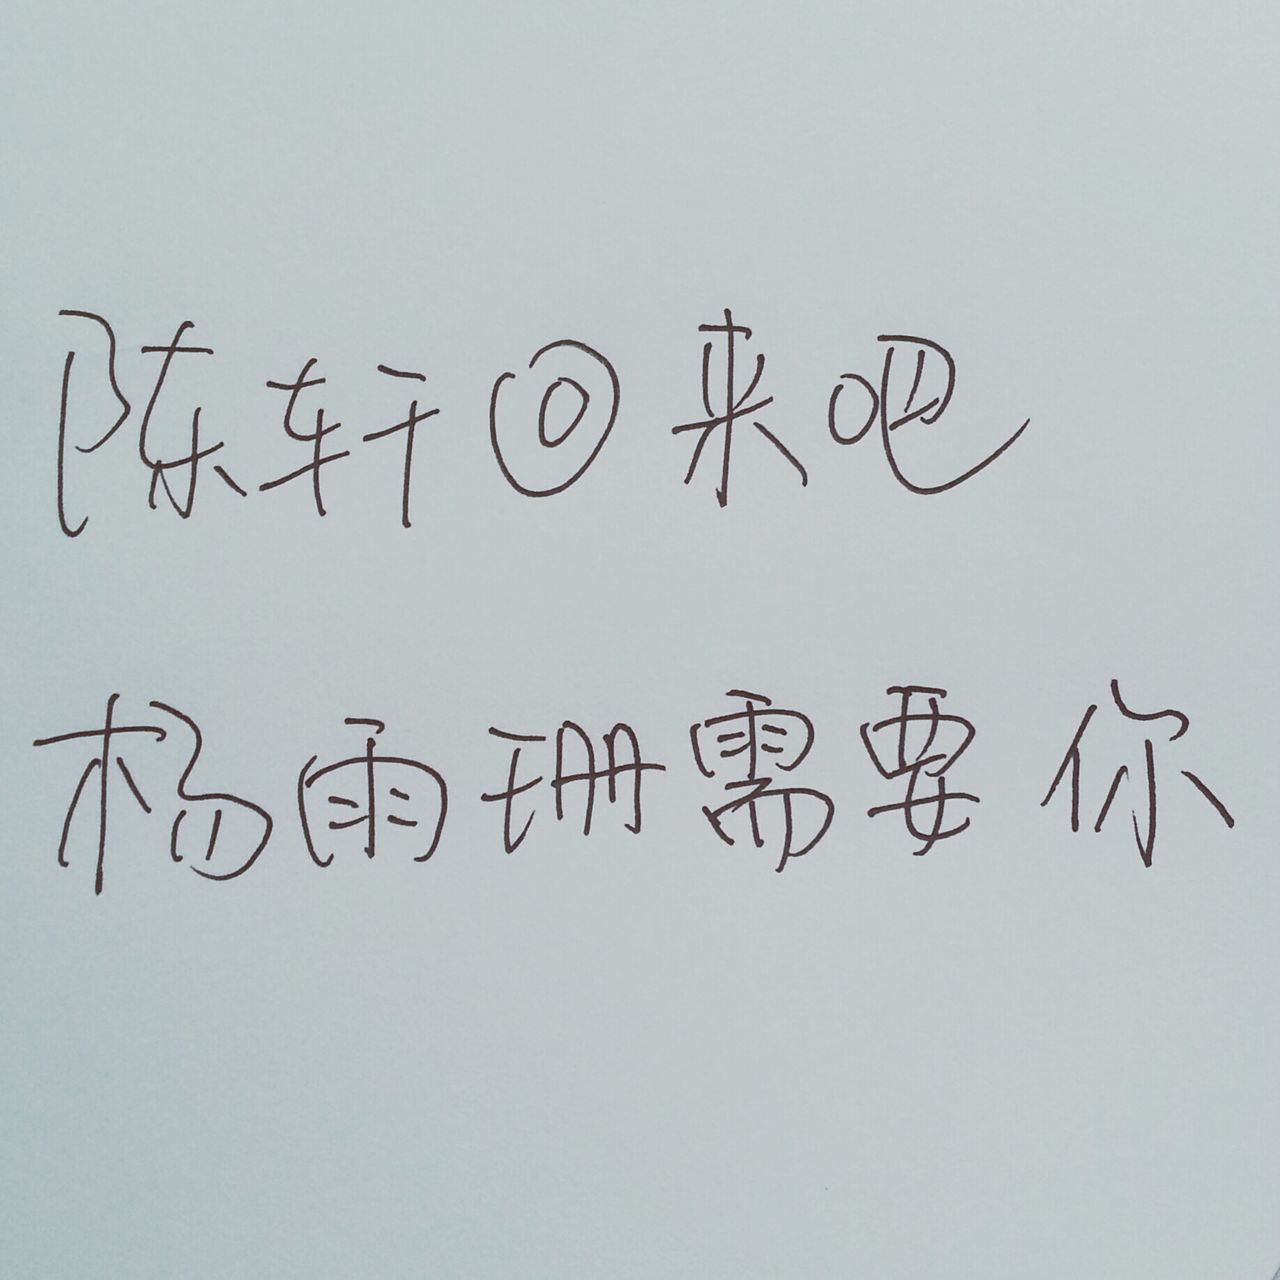 陈轩回来吧
杨雨珊需要你